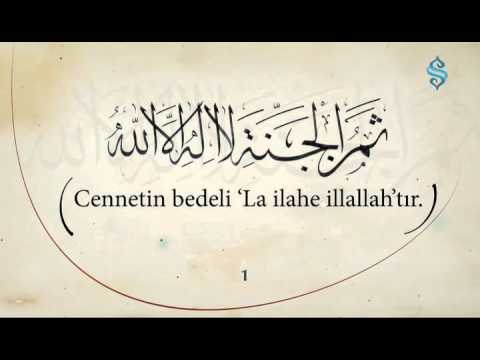 ثمن الجنة لا اله الا الله
(Cennetin bedeli ‘La ilahe illallah’tır.)
1